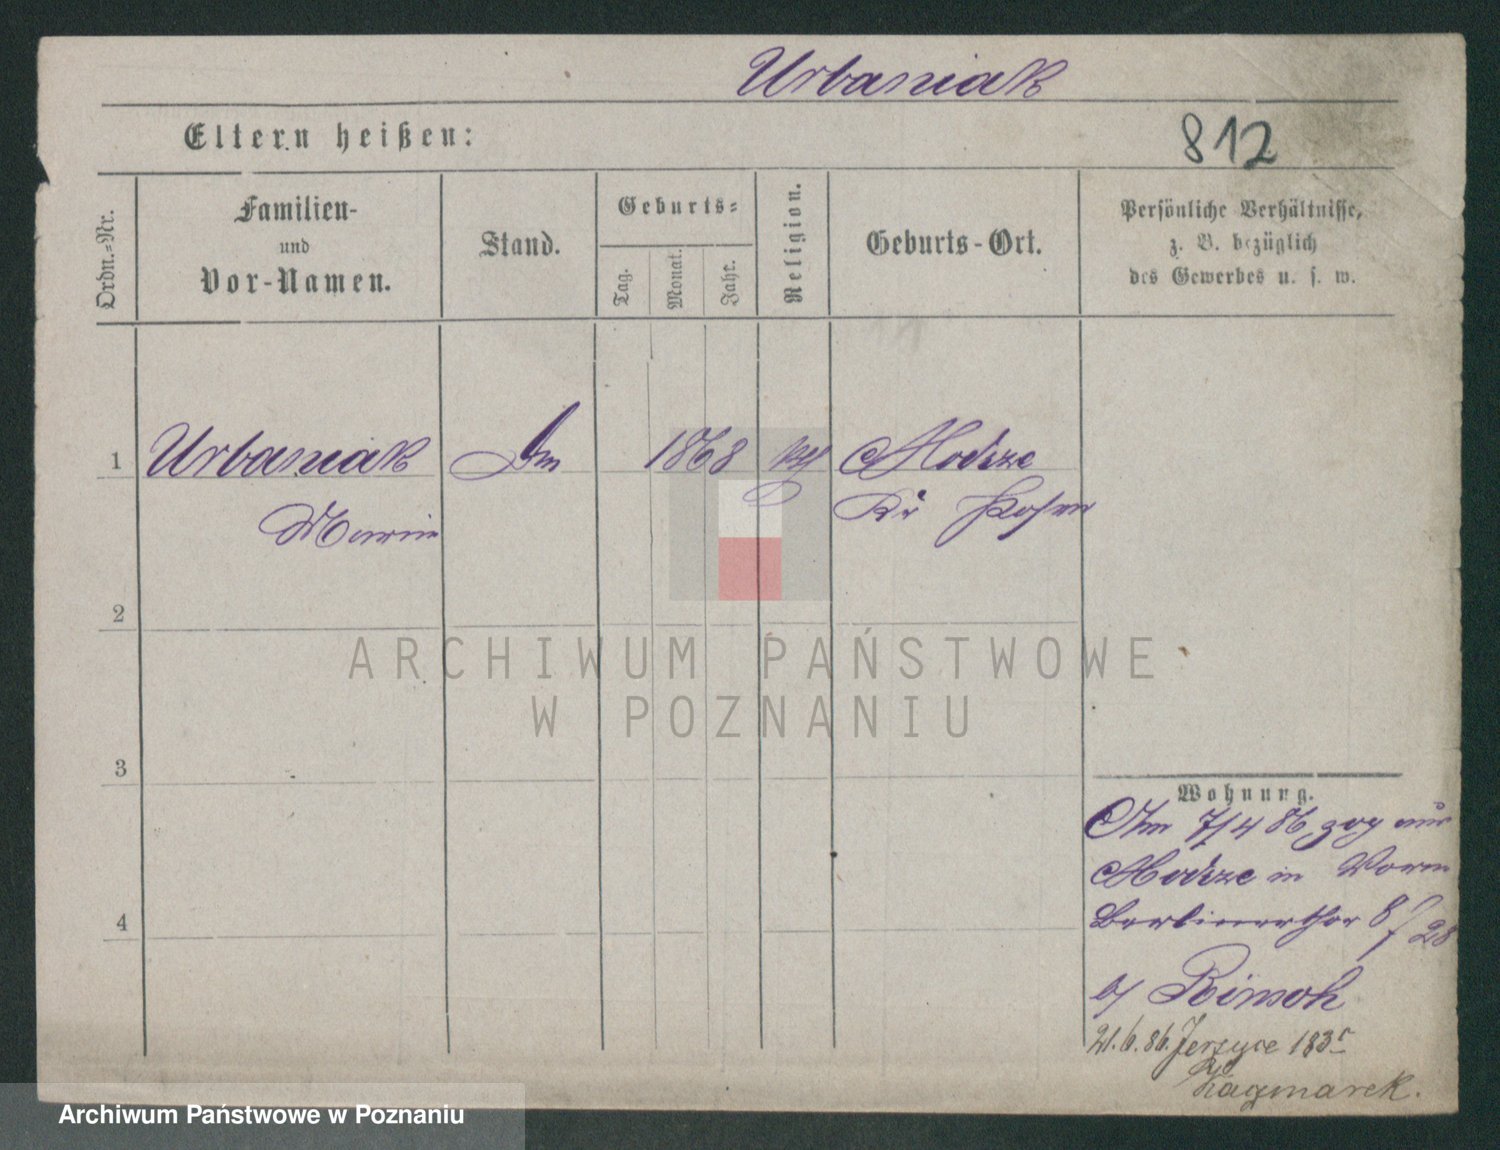 Urbaniak
812
Eltern heißen:
Ordn.-Nr.
Familien-
und
Vor-Namen.
Stand.
Geburts-
Tag.
Monat.
Jahr.
Religion.
Geburts-Ort.
Persönliche Verhältnisse,
z. B. bezüglich
des Gewerbes u. s. w.
1
Urbaniak
1868
Kr Posen
Marie
2
ARCHIWUM PAŃSTWOWE
W POZNANIU
3
Wohnung.
Am 7/4 86 zog aus
in
4
Berlinerthor 8/28
21.6.86. Jerzyce 183
Archiwum Państwowe w Poznaniu